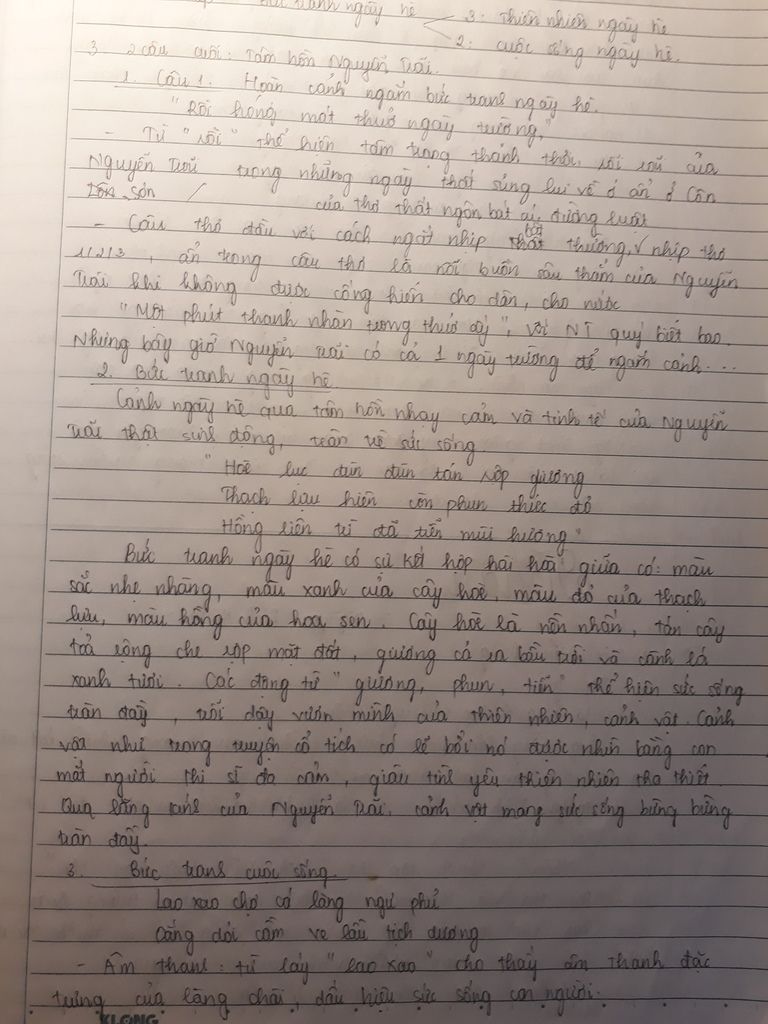 Bức tranh ngày hè 3: Thiên nhiên ngày hè
2: cuộc sống ngày hè.
3 2 câu cuối: Tâm hồn Nguyễn Trãi.
1. Câu 1: Hoàn cảnh ngắm bức tranh ngày hè.
"Rồi hóng mát thuở ngày trường,"
- Từ "rồi" thể hiện tâm trạng thảnh thơi, rỗi rãi của
Nguyễn Trãi trong những ngày thất sủng lui về ở ẩn ở Côn
Sơn / của thơ thất ngôn bát cú đường luật
- Câu thơ đầu với cách ngắt nhịp bất thường, √ nhịp thơ
1/2/3, ẩn trong câu thơ là nỗi buồn sâu thẳm của Nguyễn
Trãi khi không được cống hiến cho dân, cho nước
"Một phút thanh nhàn trong thuở ấy", với NT quý biết bao.
Nhưng bây giờ Nguyễn Trãi có cả 1 ngày trường để ngắm cảnh...
2. Bức tranh ngày hè.
Cảnh ngày hè qua tâm hồn nhạy cảm và tinh tế của Nguyễn
Trãi thật sinh động, tràn trề sức sống.
"Hoè lục đùn đùn tán rợp giương
Thạch lựu hiên còn phun thức đỏ
Hồng liên trì đã tiễn mùi hương"
Bức tranh ngày hè có sự kết hợp hài hoà giữa có: màu
sắc nhẹ nhàng, màu xanh của cây hoè, màu đỏ của thạch
lựu, màu hồng của hoa sen. Cây hoè là nền nhấn, tán cây
toả rộng che rợp mặt đất, giương cả ra bầu trời và cành lá
xanh tươi. Các động từ "giương, phun, tiễn" thể hiện sức sống
tràn đầy, trỗi dậy vươn mình của thiên nhiên, cảnh vật. Cảnh
vật như trong truyện cổ tích có lẽ bởi nó được nhìn bằng con
mắt người thi sĩ đa cảm, giàu tình yêu thiên nhiên tha thiết.
Qua lăng kính của Nguyễn Trãi, cảnh vật mang sức sống bừng bừng
tràn đầy.
3. Bức tranh cuộc sống.
Lao xao chợ cá làng ngư phủ
Dắng dỏi cầm ve lầu tịch dương
- Âm thanh: từ láy "lao xao" cho thấy âm thanh đặc
trưng của làng chài, dấu hiệu sức sống con người.
KLONG